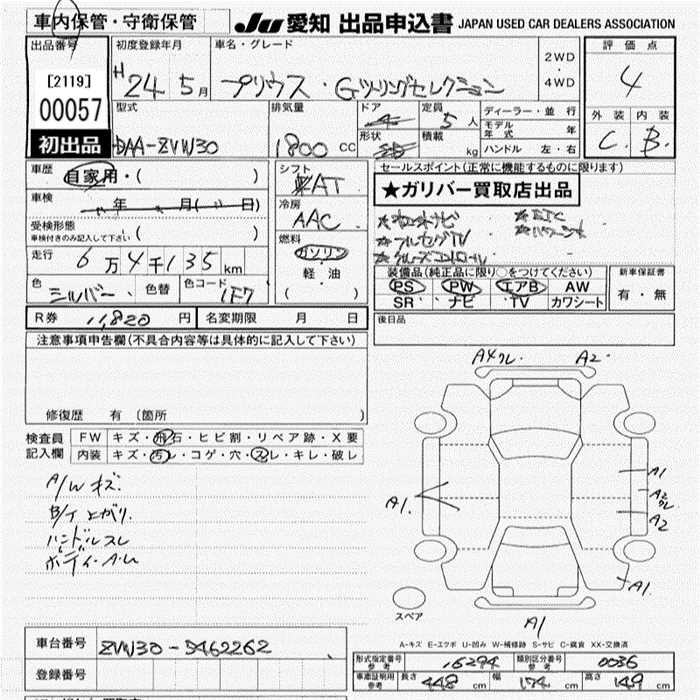 車内保管・守衛保管
JU 愛知 出品申込書 JAPAN USED CAR DEALERS ASSOCIATION
出品番号
[2119]
00057
初出品
初度登録年月
H 24 5月
車名・グレード
プリウス・Gツーリングセレクション
2WD
4WD
評価点
4
外装 内装
C. B.
型式
DAA-ZVW30
排気量
1800 CC
ドア
形状
定員
5人
積載
kg
ディーラー・並行
モデル年式 年
ハンドル 左・右
車歴
自家用・( )
車検
年 月( 日)
受検形態
車検付きのみ記入して下さい ( )
走行
6万4千135km
色
シルバー
色替
色コード
1F7
シフト
AT
冷房
AAC
燃料
ガソリン
軽油
( )
セールスポイント(正常に機能するものに限ります)
★ガリバー買取店出品
フルセグTV
クルーズコントロール
ETC
装備品(純正品に限り○をつけてください)
PS PW エアB AW
SR ナビ TV カワシート
新車保証書
有・無
R券 11,820円
名変期限 月 日
後日品
注意事項申告欄(不具合内容等は具体的に記入して下さい)
修復歴 有 (箇所 )
検査員記入欄
FW キズ・飛石・ヒビ割・リペア跡・X要
内装 キズ・汚レ・コゲ・穴・スレ・キレ・破レ
A/Wキズ.
ハンドルスレ
A4クレ
A2
A1.
A1
A2クレ
A2
A1.
A1
スペア
A-キズ E-エクボ U-凹み W-補修跡 S-サビ C-腐食 XX-交換済
車台番号
ZVW30-5462262
登録番号
型式指定番号 参考
16294
類別区分番号 参考
0036
車庫証明用 参考
長さ 448 cm
幅 174 cm
高さ 149 cm